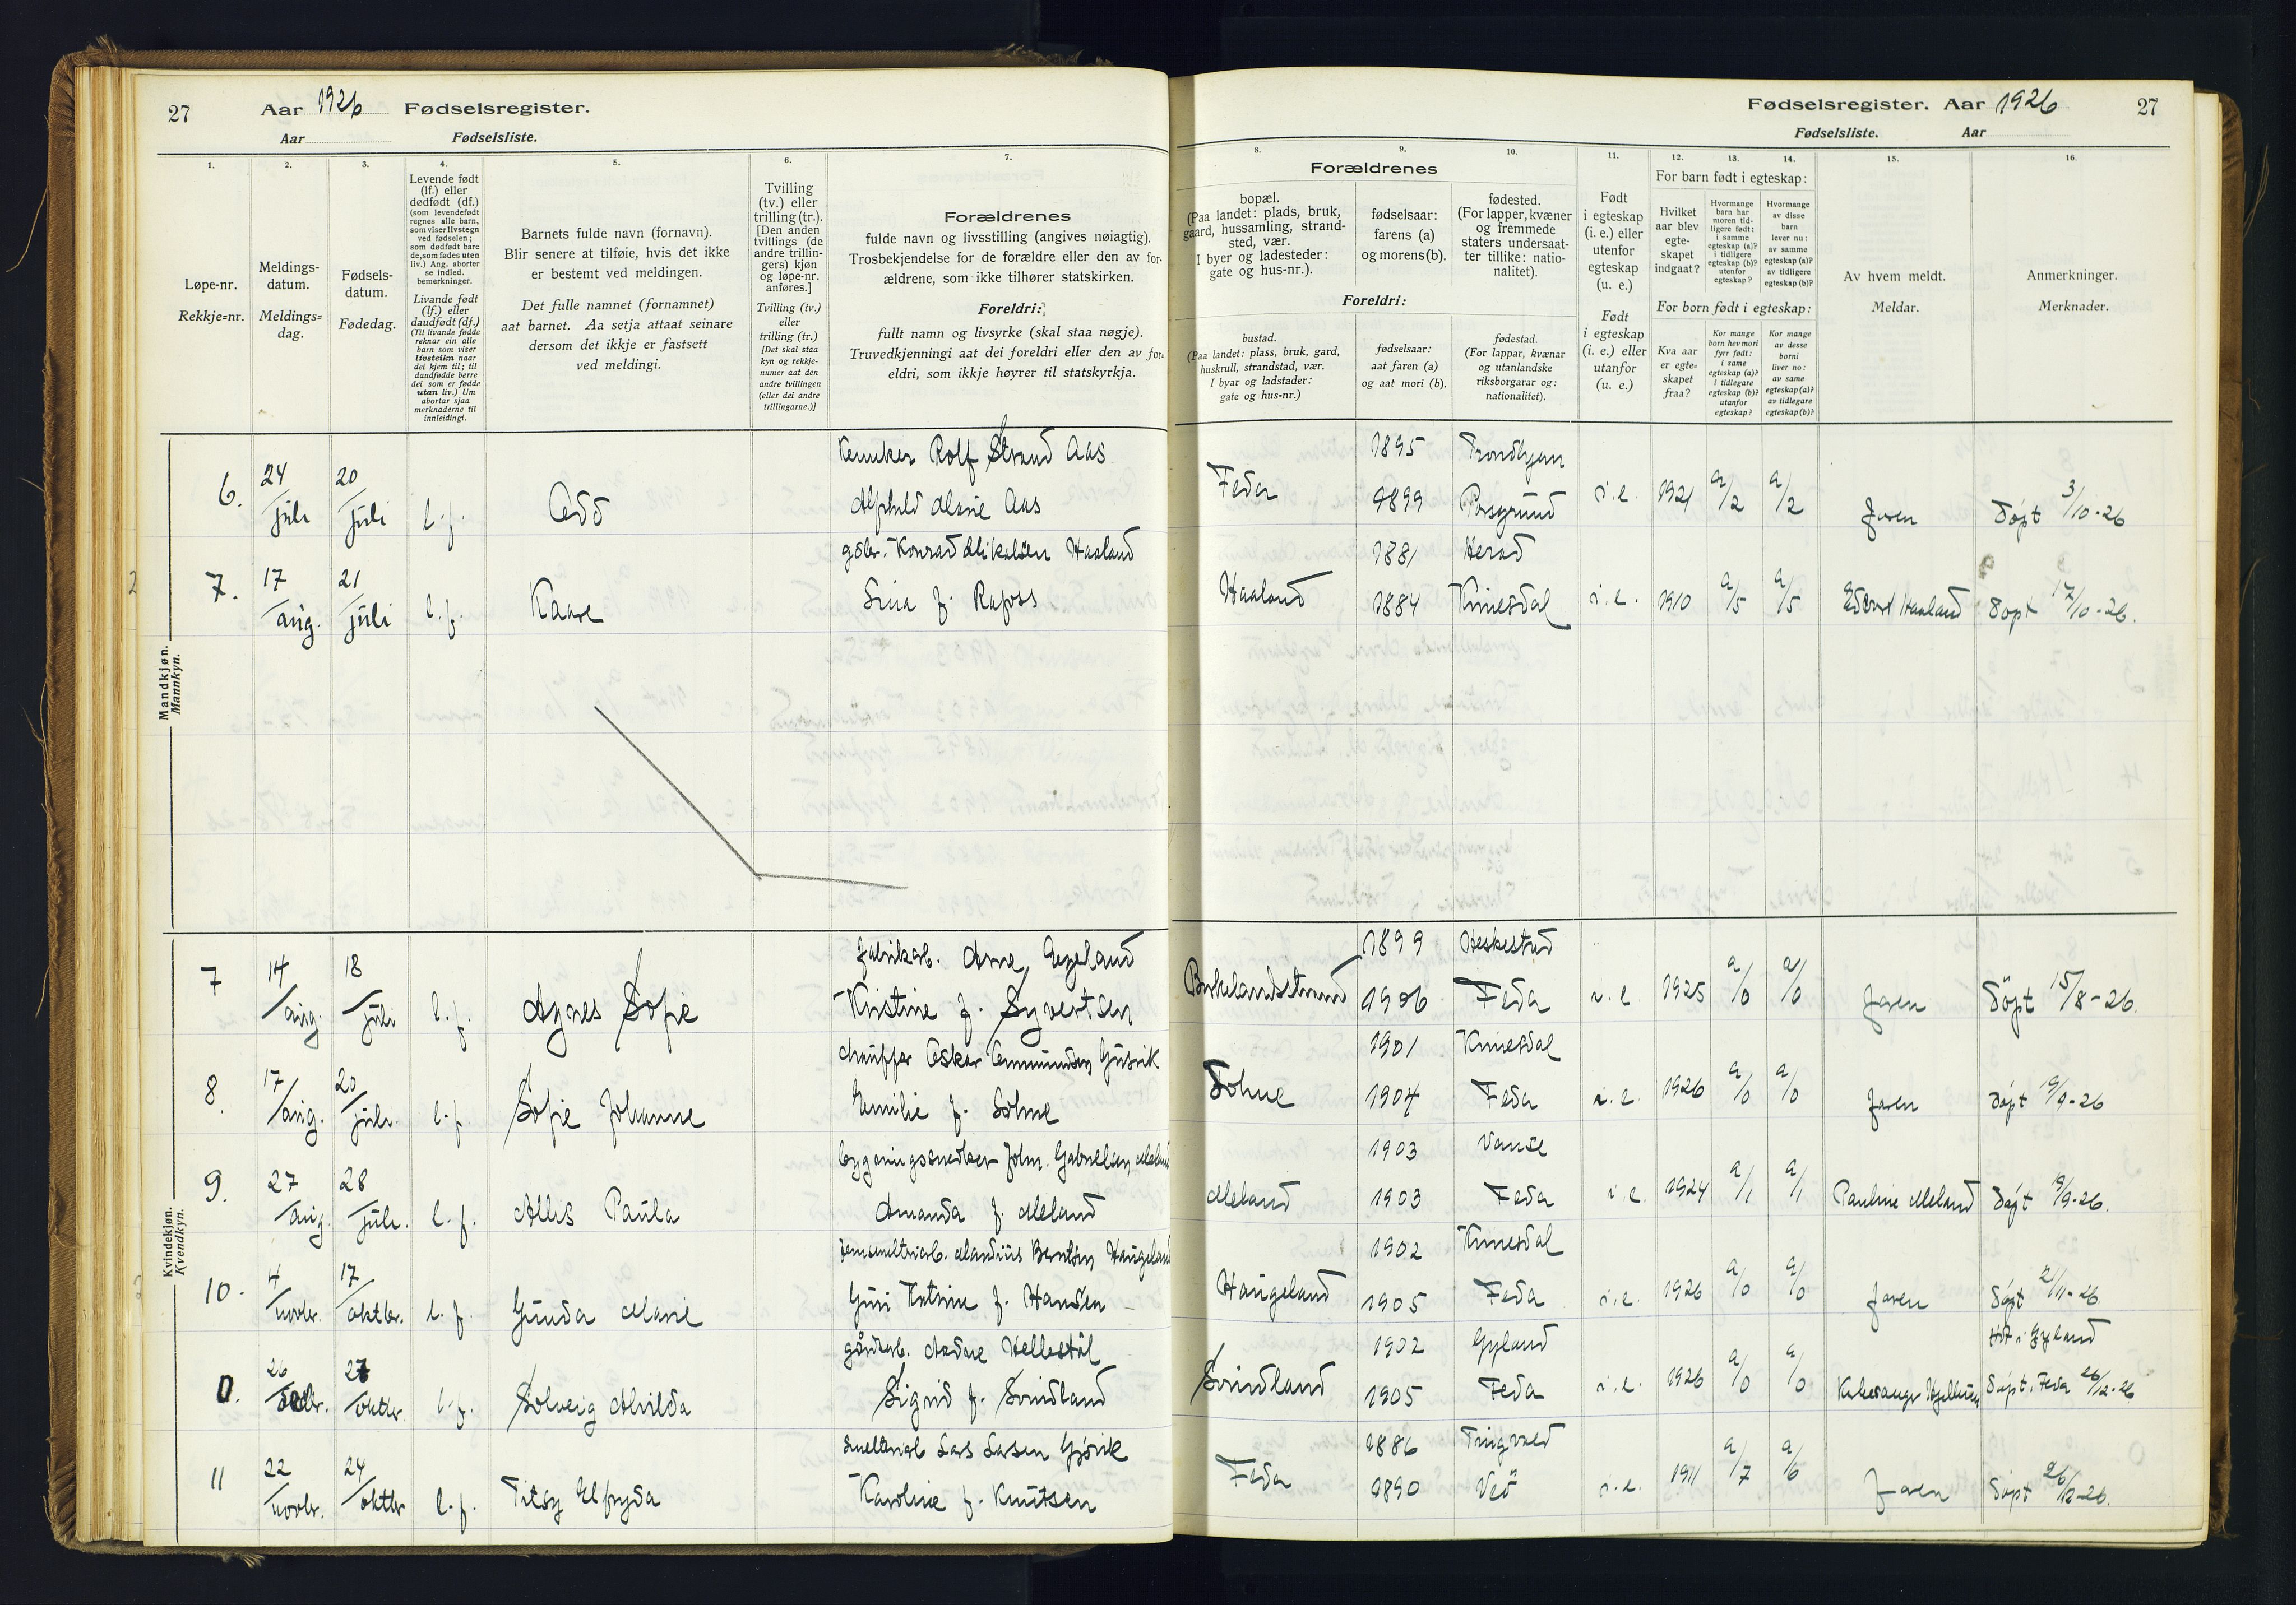 27 Aar 1926 Fødselsregister.
Aar Fødselsliste.
1. 2. 3. 4. 5. 6. 7.
Løpe-nr.
Rekkje=nr.
Meldings-
datum.
Meldings=
dag.
Fødsels-
datum.
Fødedag.
Levende født
(lf.) eller
dødfødt (df.)
(som levendefødt
regnes alle barn,
som viser livstegn
ved fødselen;
som dødfødt bare
de, som fødes uten
liv.) Ang. aborter
se indled.
bemerkninger.
Livande født
(lf.) eller
daudfødt (df.)
(Til livande fødde
reknar ein alle
barn som viser
livsteikn naar
dei kjem til; til
daudfødde berre
dei som er fødde
utan liv.) Um
abortar sjaa
merknaderne til
innleidingi.
Barnets fulde navn (fornavn).
Blir senere at tilføie, hvis det ikke
er bestemt ved meldingen.
Det fulle namnet (fornamnet)
aat barnet. Aa setja attaat seinare
dersom det ikkje er fastsett
ved meldingi.
Tvilling
(tv.) eller
trilling (tr.).
[Den anden
tvillings (de
andre trillin-
gers) kjøn
og løpe-nr.
anføres.]
Tvilling (tv.)
eller
trilling (tr.)
[Det skal staa
kyn og rekkje-
numer aat den
andre tvillingen
(eller dei andre
trillingarne.)]
Forældrenes
fulde navn og livsstilling (angives nøiagtig).
Trosbekjendelse for de forældre eller den av for-
ældrene, som ikke tilhører statskirken.
Foreldri:
fullt namn og livsyrke (skal staa nøgje).
Truvedkjenningi aat dei foreldri eller den av for-
eldri, som ikkje høyrer til statskyrkja.
Fødselsregister. Aar 1926 27
Fødselsliste. Aar
8. 9. 10. 11. 12. 13. 14. 15. 16.
Forældrenes
bopæl.
(Paa landet: plads, bruk,
gaard, hussamling, strand-
sted, vær.
I byer og ladesteder:
gate og hus-nr.).
fødselsaar:
farens (a)
og morens (b).
fødested.
(For lapper, kvæner
og fremmede
staters undersaat-
ter tillike: natio-
nalitet).
Foreldri:
bustad.
(Paa landet: plass, bruk, gard,
huskrull, strandstad, vær.
I byar og ladstader:
gate og hus=nr.)
fødselsaar:
aat faren (a)
og aat mori (b).
fødestad.
(For lappar, kvænar
og utanlandske
riksborgarar og:
nationalitet).
Født
i egteskap
(i. e.) eller
utenfor
egteskap
(u. e.)
Født
i egteskap
(i. e.) eller
utanfor
(u. e.)
For barn født i egteskap:
Hvilket
aar blev
egte-
skapet
indgaat?
Hvormange
barn har
moren tid-
ligere født:
i samme
egteskap (a)?
i tidligere
egteskap (b)?
utenfor
egteskap?
Hvormange
av disse
barn
lever nu:
av samme
egteskap (a)?
av tidligere
egteskap (b)?
For born født i egteskap:
Kva aar
er egte=
skapet
fraa?
Kor mange
born hev mori
fyrr født:
i same
egteskap (a)?
i tidlegare
egteskap (b)?
utanfor
egteskap?
Kor mange
av desse
borni
liver no:
av same
egteskap (a)?
av tidlegare
egteskap (b)?
Av hvem meldt.
Meldar.
Anmerkninger.
Merknader.
Mandkjøn.
Mannkyn.
Kemiker Rolf Strand Aas 1895 Trondhjem
6. 24/juli 20/juli l.f. Odd Alfhild Marie Aas Feda 1899 Porsgrund i.e. 1921 a/2 a/2 Faren Døpt 3/10-26
gbr. Konrad Mikalsen Haaland 1881 Herad
7. 17/aug. 21/juli l.f. Kaare Sina f. Rafoss Haaland 1884 Kvinesdal i.e. 1910 a/5 a/5 Edvart Haaland Døpt 17/10-26.
Kvindekjøn.
Kvendkyn.
fabrikarb. Arne Egeland 1899 Heskestad
7 14/aug. 18/juli l.f. Agnes Sofie Kristine f. Syvertsen Birkelandsstrand 1906 Feda i.e. 1925 a/0 a/0 Faren Døpt 15/8-26.
chauffør Oskar Ommundsen Gusvik 1901 Kvinesdal
8. 17/aug. 20/juli l.f. Sofie Johanne Emilie f. Solme Solme 1904 Feda i.e. 1926 a/0 a/0 Faren Døpt 19/9-26
bygningssnedker John. Gabrielsen Meland 1903 Vanse
9. 27/aug. 28/juli. l.f. Allis Paula Amanda f. Meland Meland 1903 Feda i.e. 1924 a/1 a/1 Pauline Meland Døpt 19/9-26.
Mandius Berntsen Haugeland 1902 Kvinesdal
10. 4/novbr. 17/oktbr. l.f. Gunda Marie Guri Katrine f. Hansen Haugeland 1905 Feda i.e. 1926 a/0 a/0 Faren Døpt 21/11-26.
gårdarb. Andare Hellestøl 1902 Gyland Født i Gyland
0. 26/ 27/oktbr. l.f. Solveig Alvilda Sigrid f. Svindland Svindland 1905 Feda i.e. 1926 a/0 a/0 Kirkesanger Døpt i Feda 26/12-26
smelterarb Lars Larsen Gjørvik 1886 Tingvold
11 22/novbr. 24/oktbr l.f. Titsy Elfryda Karoline f. Knutsen Feda 1890 Veø i.e. 1911 a/7 a/6 Faren Døpt 26/12-26.